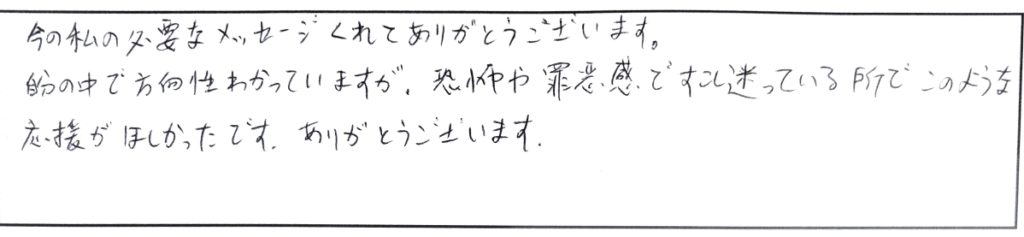 今の私の必要なメッセージくれてありがとうございます。
自分の中で方向性わかっていますが、恐怖や罪悪感ですこし迷っている所でこのような
応援がほしかったです. ありがとうございます.